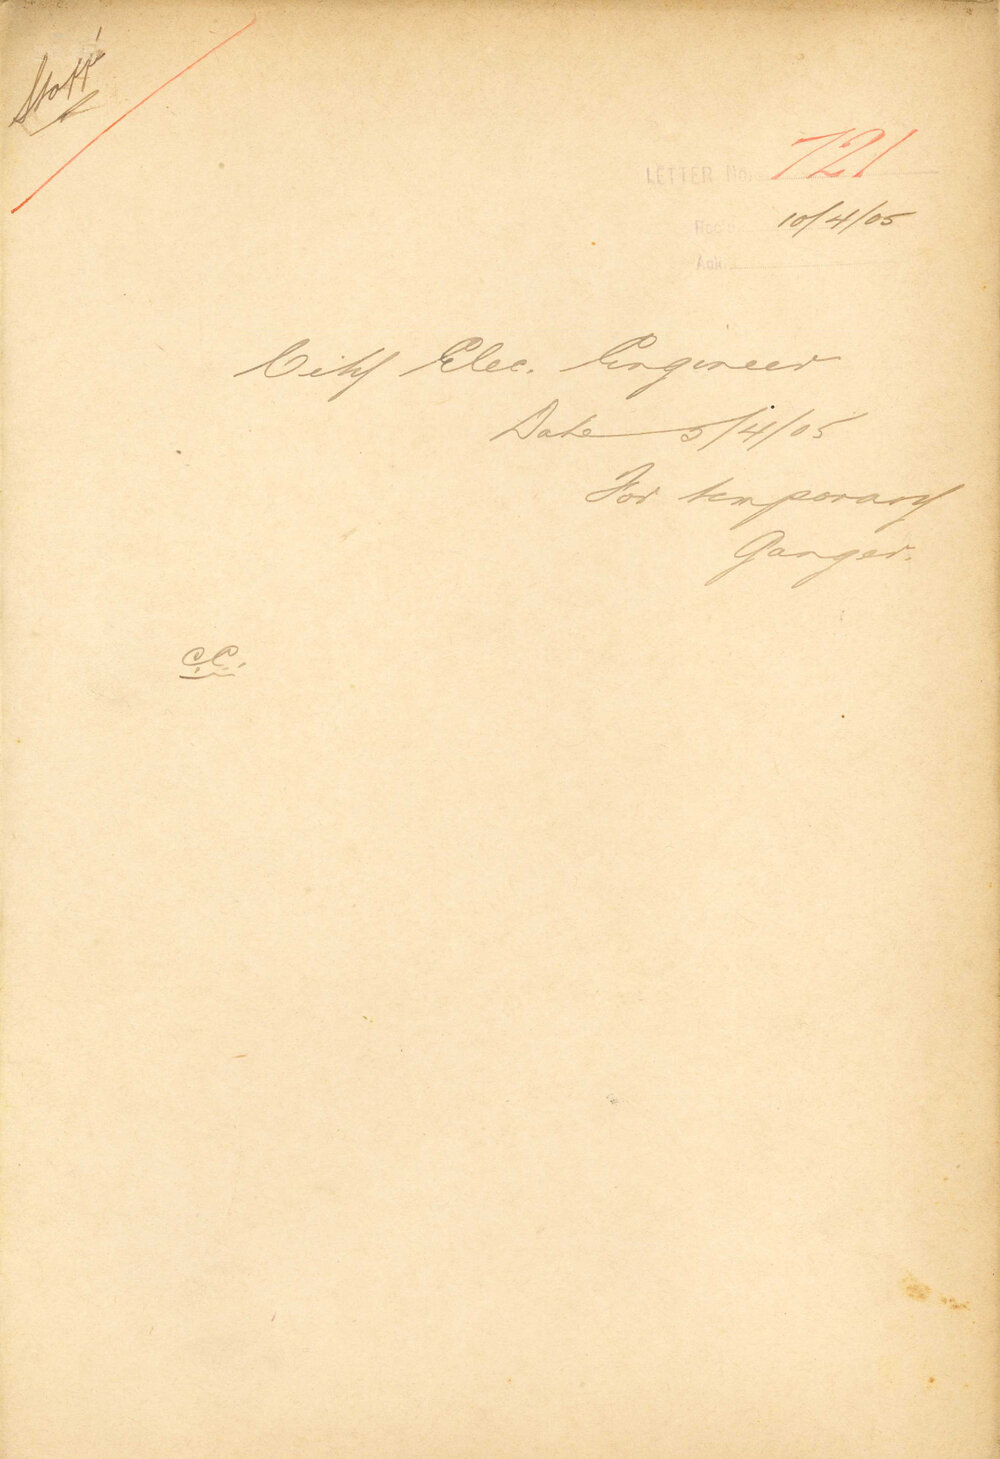 Staff
LETTER No. 721
Rec'd 10/4/05
Ack.
City Elec. Engineer
Date 5/4/05
For temporary
Ganger.
C.C.